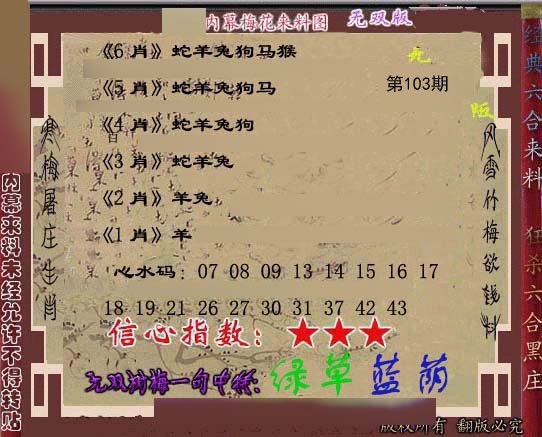 内幕梅花来料图 无双版
《6 肖》蛇羊兔狗马猴
《5 肖》蛇羊兔狗马
第103期
《4 肖》蛇羊兔狗
《3 肖》蛇羊兔
《2 肖》羊兔
《1 肖》羊
心水码： 07 08 09 13 14 15 16 17
18 19 21 26 27 30 31 37 42 43
信心指数：★★★
绿草蓝荫
版权所有 翻版必究
寒梅屠庄生肖
风雪竹梅欲钱料
内幕来料未经允许不得转贴
经典六合来料 狂杀六合黑庄